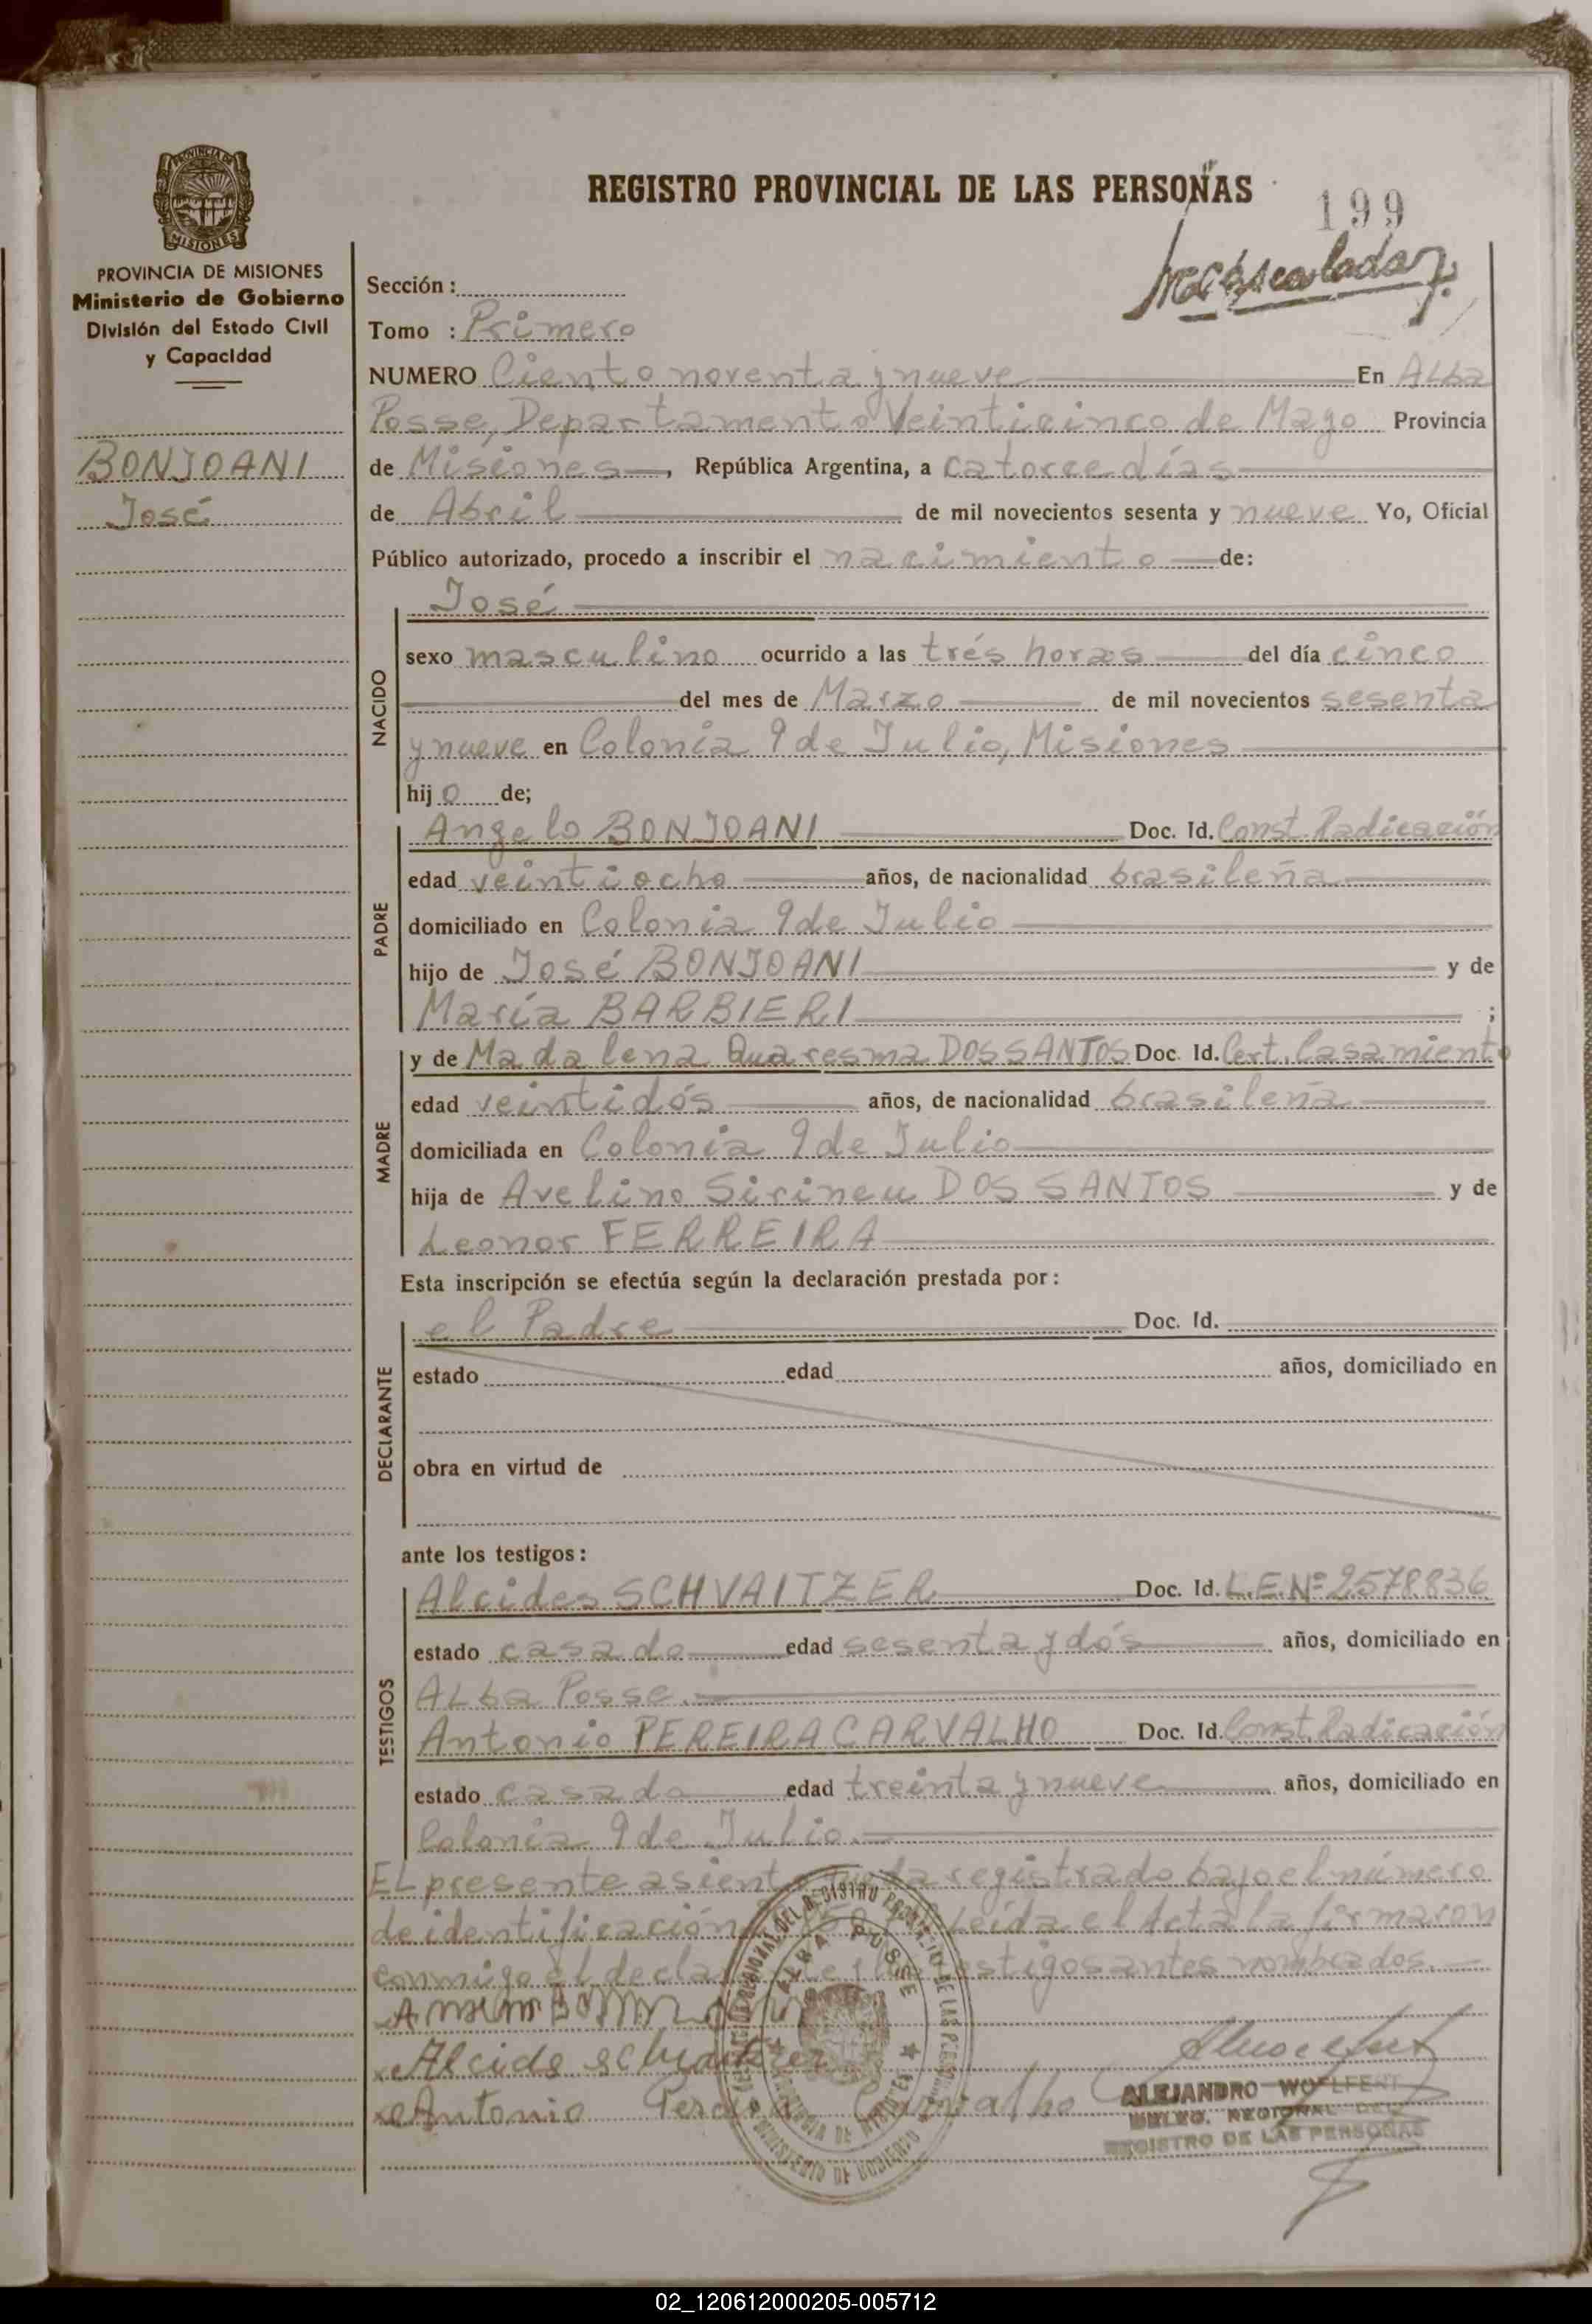 REGISTRO PROVINCIAL DE LAS PERSONAS
199
PROVINCIA DE MISIONES
Ministerio de Gobierno
División del Estado Civil
y Capacidad
BONJOANI
José
Sección :
Tomo : Primero
NUMERO Ciento noventa y nueve En Alba
Posse, Departamento Veinticinco de Mayo Provincia
de Misiones, República Argentina, a catorce días
de Abril de mil novecientos sesenta y nueve Yo, Oficial
Público autorizado, procedo a inscribir el nacimiento de:
NACIDO
José
sexo masculino ocurrido a las trés horas del día cinco
del mes de Marzo de mil novecientos sesenta
y nueve en Colonia 9 de Julio, Misiones
hijo de;
PADRE
Angelo BONJOANI Doc. Id. Const. Radicación
edad veintiocho años, de nacionalidad brasileña
domiciliado en Colonia 9 de Julio
hijo de José BONJOANI y de
María BARBIERI ;
MADRE
y de Madalena Quaresma DOS SANTOS Doc. Id. Cert. Casamiento
edad veintidós años, de nacionalidad brasileña
domiciliada en Colonia 9 de Julio
hija de Avelino Sirineu DOS SANTOS y de
Leonor FERREIRA
Esta inscripción se efectúa según la declaración prestada por:
DECLARANTE
el Padre Doc. Id.
estado edad años, domiciliado en
obra en virtud de
ante los testigos:
TESTIGOS
Alcides SCHVAITZER Doc. Id. L.E.Nº 2578836
estado casado edad sesenta y dós años, domiciliado en
Alba Posse.
Antonio PEREIRA CARVALHO Doc. Id. Const. Radicación
estado casado edad treinta y nueve años, domiciliado en
Colonia 9 de Julio.
El presente asiento queda registrado bajo el número
de identificación Leída el Acta la firmaron
conmigo el declarante y los testigos antes nombrados.
Alcide schvaitzer
Antonio Pereira Carvalho
ALEJANDRO WOLFERT
DELEG. REGIONAL DEL
REGISTRO DE LAS PERSONAS
ALBA POSSE
02_120612000205-005712